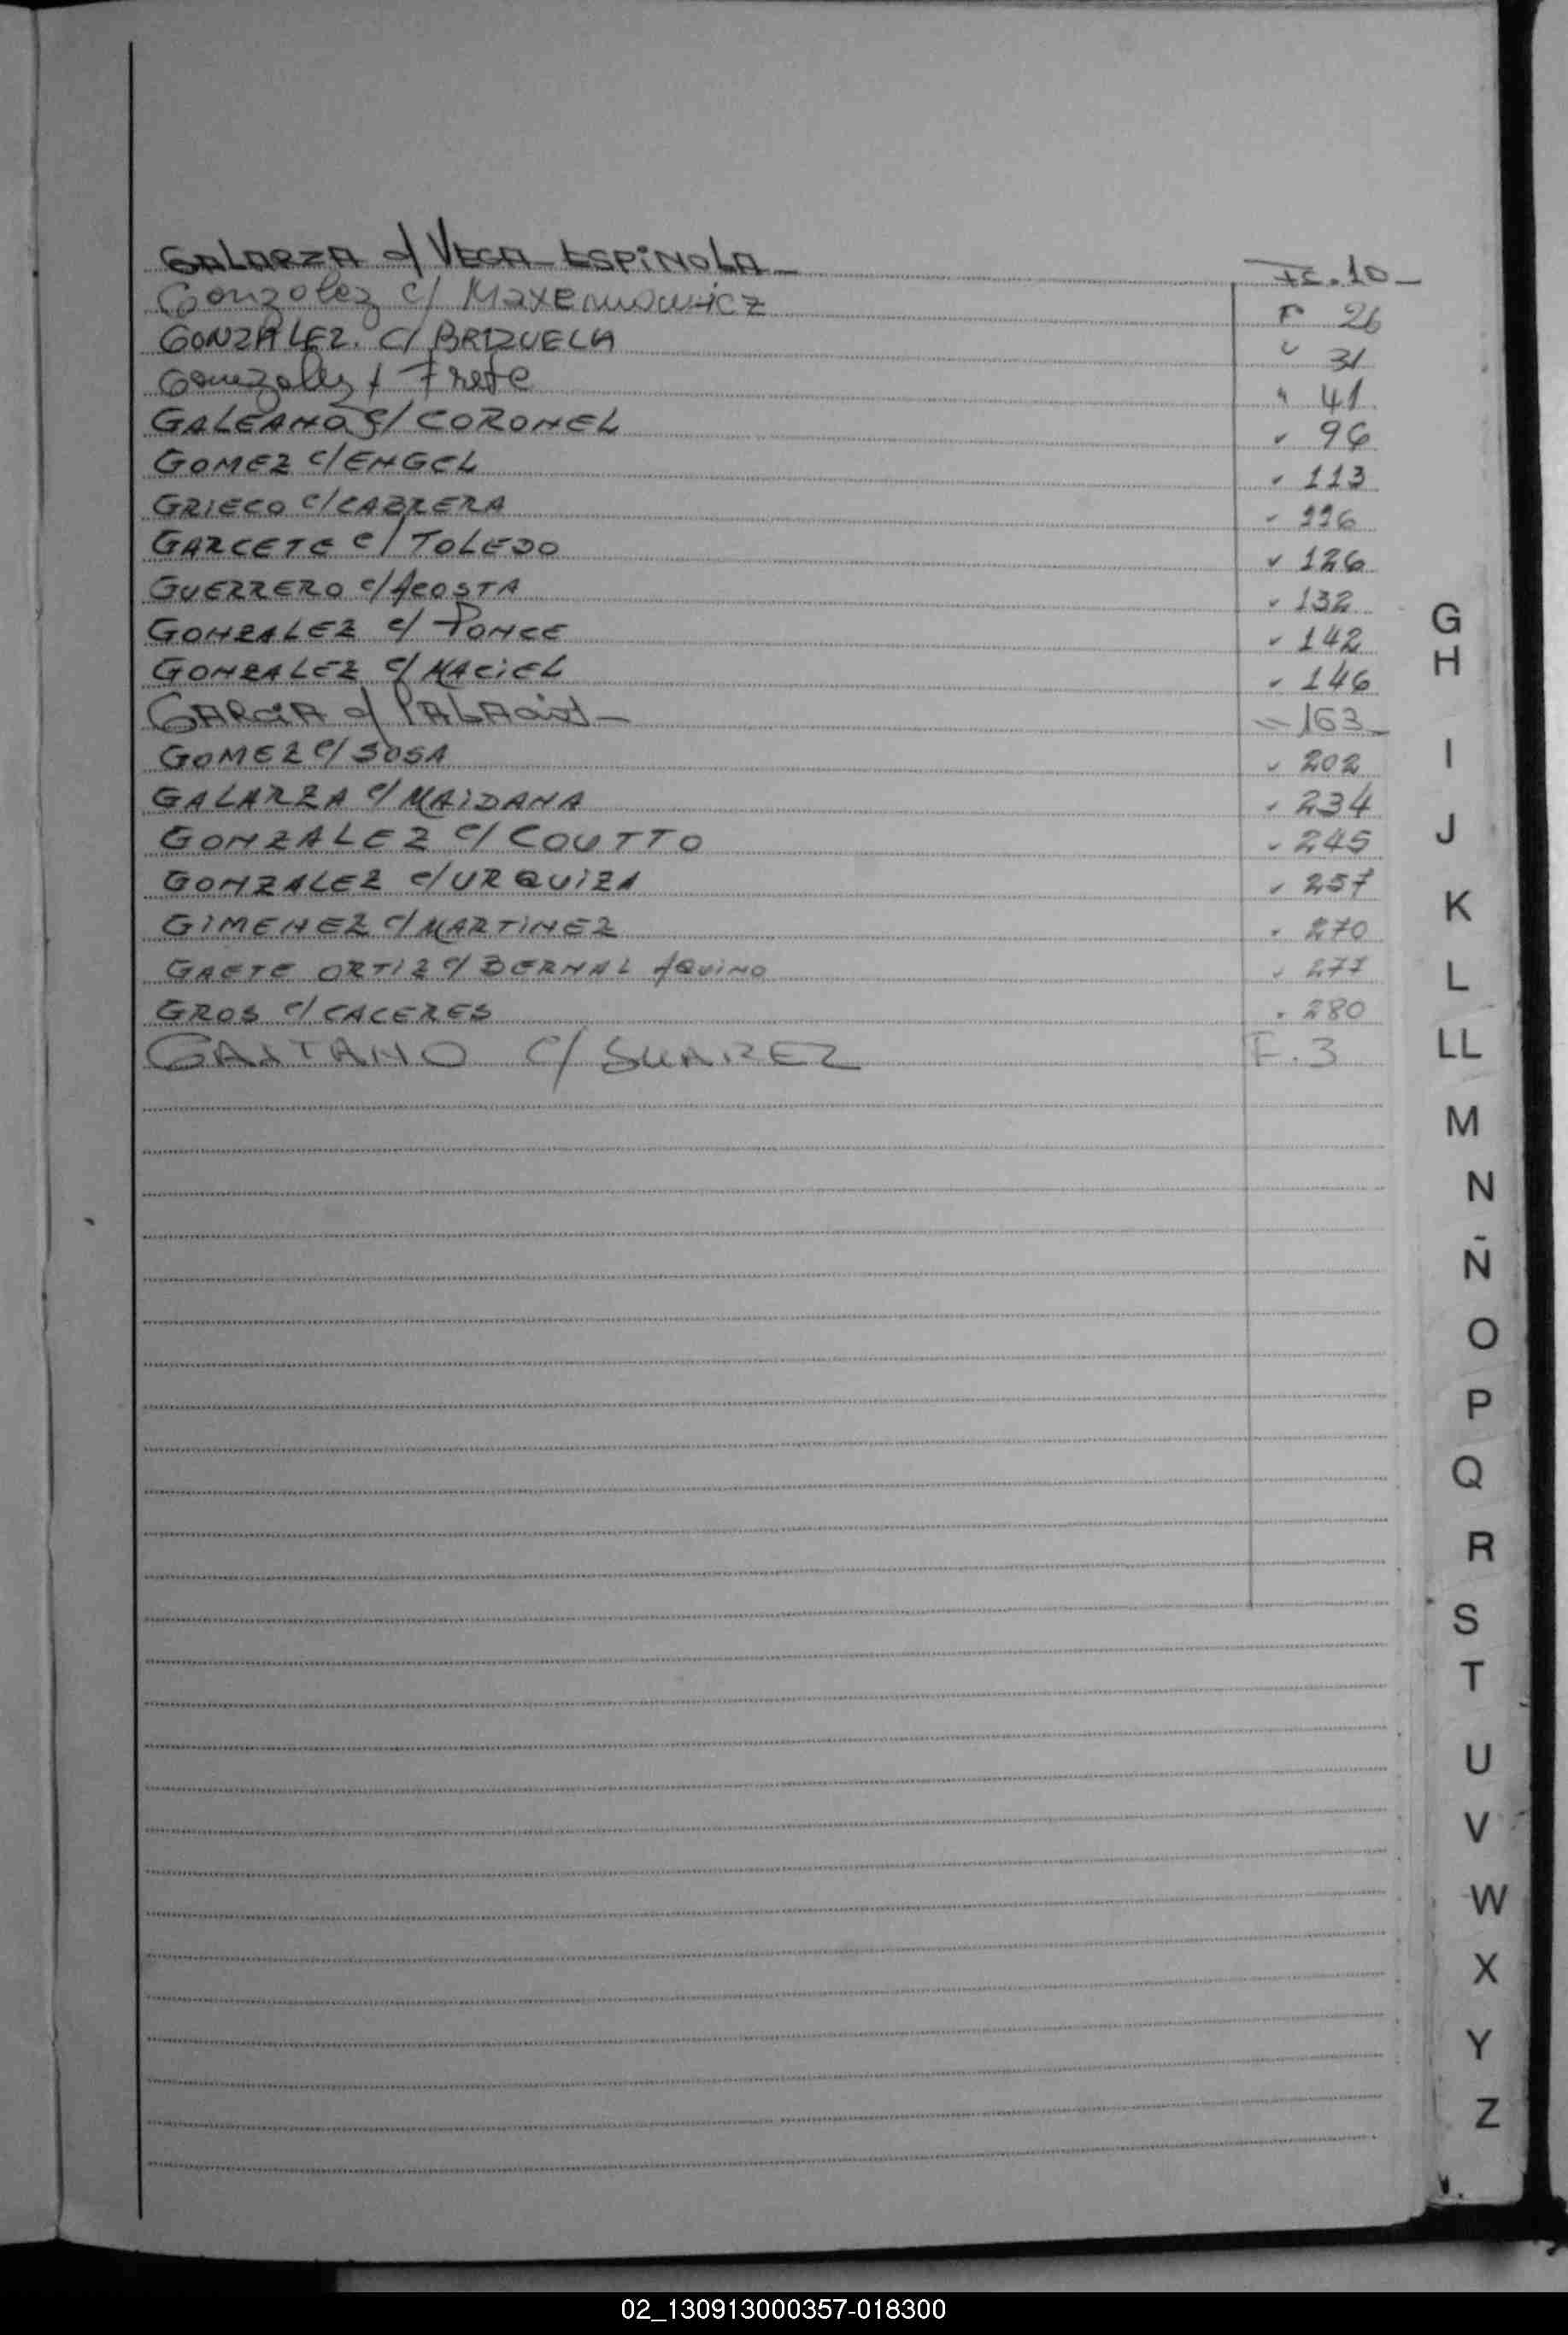 GALARZA c/ VEGA ESPINOLA — Fs. 10 —
Gonzalez c/ Maxemowicz F 26
GONZALEZ. C/ BRIZUELA " 31
Gonzalez c/ Frete " 41
GALEANO c/ CORONEL " 96
GOMEZ c/ ENGEL " 113
GRIECO c/ CABRERA " 116
GARCETE c/ TOLEDO " 126
GUERRERO c/ ACOSTA " 132
GONZALEZ c/ PONCE " 142
GONZALEZ c/ MACIEL " 146
GARCIA c/ PALACIOS — " 163 —
GOMEZ c/ SOSA " 202
GALARZA c/ MAIDANA " 234
GONZALEZ c/ COUTTO " 245
GONZALEZ c/ URQUIZA " 257
GIMENEZ c/ MARTINEZ " 270
GAETE ORTIZ c/ BERNAL AQUINO " 277
GROS c/ CACERES " 280
GASTANO C/ SUAREZ F. 3
G
H
I
J
K
L
LL
M
N
Ñ
O
P
Q
R
S
T
U
V
W
X
Y
Z
02_130913000357-018300